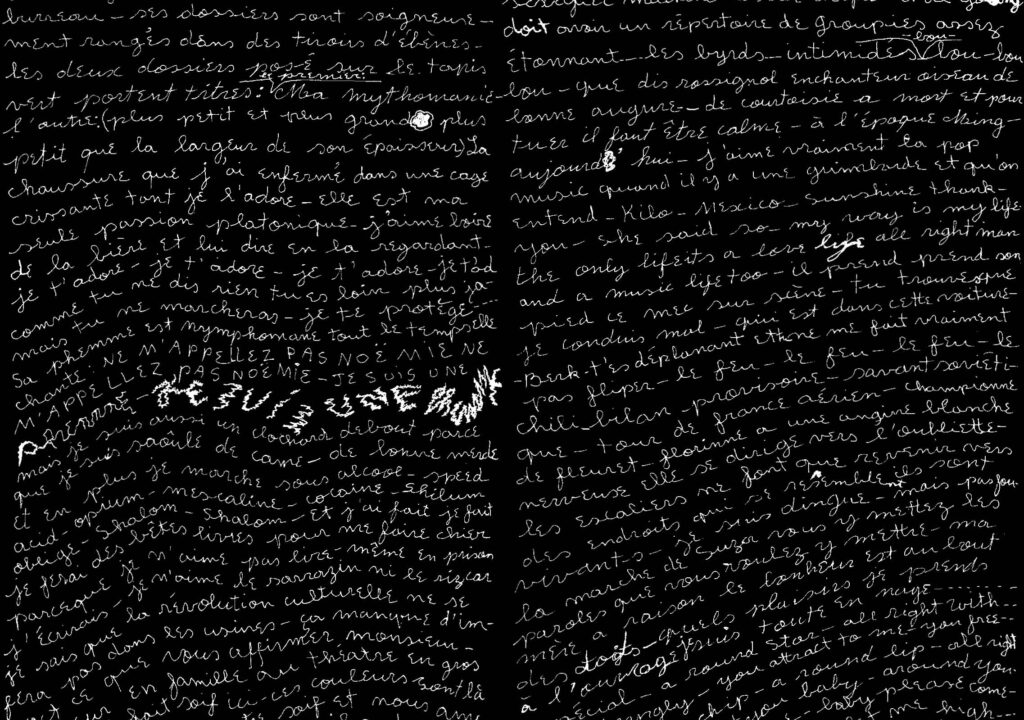 bureau - ses dossiers sont soigneuse-
ment rangés dans des tiroirs d'ébènes -
les deux dossiers posé sur le tapis
le premier:
vert portent titres: Ma mythomanie
l'autre: (plus petit et plus grand plus
petit que la largeur de son épaisseur) La
chaussure que j'ai enfermé dans une cage
crissante tant je l'adore - elle est ma
seule passion platonique - j'aime boire
de la bière et lui dire en la regardant -
je t'adore - je t'adore - je t'adore - je t'ad
comme tu ne dis rien tu es loin plus ja-
mais tu ne marcheras - je te protège ---
sa phemme est nymphomane tout le temps elle
chante NE M'APPELLEZ PAS NOÉMIE NE
M'APPELLEZ PAS NOÉMIE - JE SUIS UNE
mais je suis aussi un clochard debout parce
que je suis saoûlé de came - de bonne merde
et en plus je marche sous alcool - speed
acid - opium - mescaline - cocaïne - shilum
oblige - Shalom - Shalom - et j'ai fait je fait
je ferai des bêtes livres pour me faire chier
parceque je n'aime pas lire - même en prison
j'écrivais - je n'aime le sarrazin ni le riz car
je sais que la révolution culturelle ne se
fera pas dans les usines - ça manque d'im-
vous affirmer monsieur -
en famille au théâtre en gros
ces couleurs sont là
soif et nous
doit avoir un répertoire de groupies assez
- bou -
étonnant --- les byrds intimidés bou - bou
bou - que dis rossignol enchanteur oiseau de
bonne augure - de courtoisie a mort et pour
tuer il faut être calme - à l'époque Ming -
aujourd'hui - j'aime vraiment la pop
music quand il y a une guimbarde et qu'on
entend - Kilo - Mexico - sunshine thank -
you - she said so - my way is my life
the only life its a love life all right man
and a music life too - il prend prend son
pied ce mec sur scène - tu trouves que
je conduis mal - qui est dans cette voiture -
- Berk - t'es déplanant ethane me fait vraiment
pas fliper - le feu - le feu - le feu - le
chili - bilan - provisoire - savant soviéti-
que - tour de france aérien - championne
de fleuret - florinne a une angine blanche
nerveuse elle se dirige vers l'oubliette -
les escaliers ne font que revenir vers
des endroits qui se ressemblent ils sont
vivants - je suis dingue - mais pas fou
la marche de Suza vous y mettez les
paroles que vous voulez y mettre - ma
mère a raison le bonheur est au bout
des doigts - quels plaisirs je prends
à l'ouvrage je suis tout en nage
spécial - a round star - all right with
you attract to me you free
chip - a round lip - all right
you - baby - around you
please come -
me high